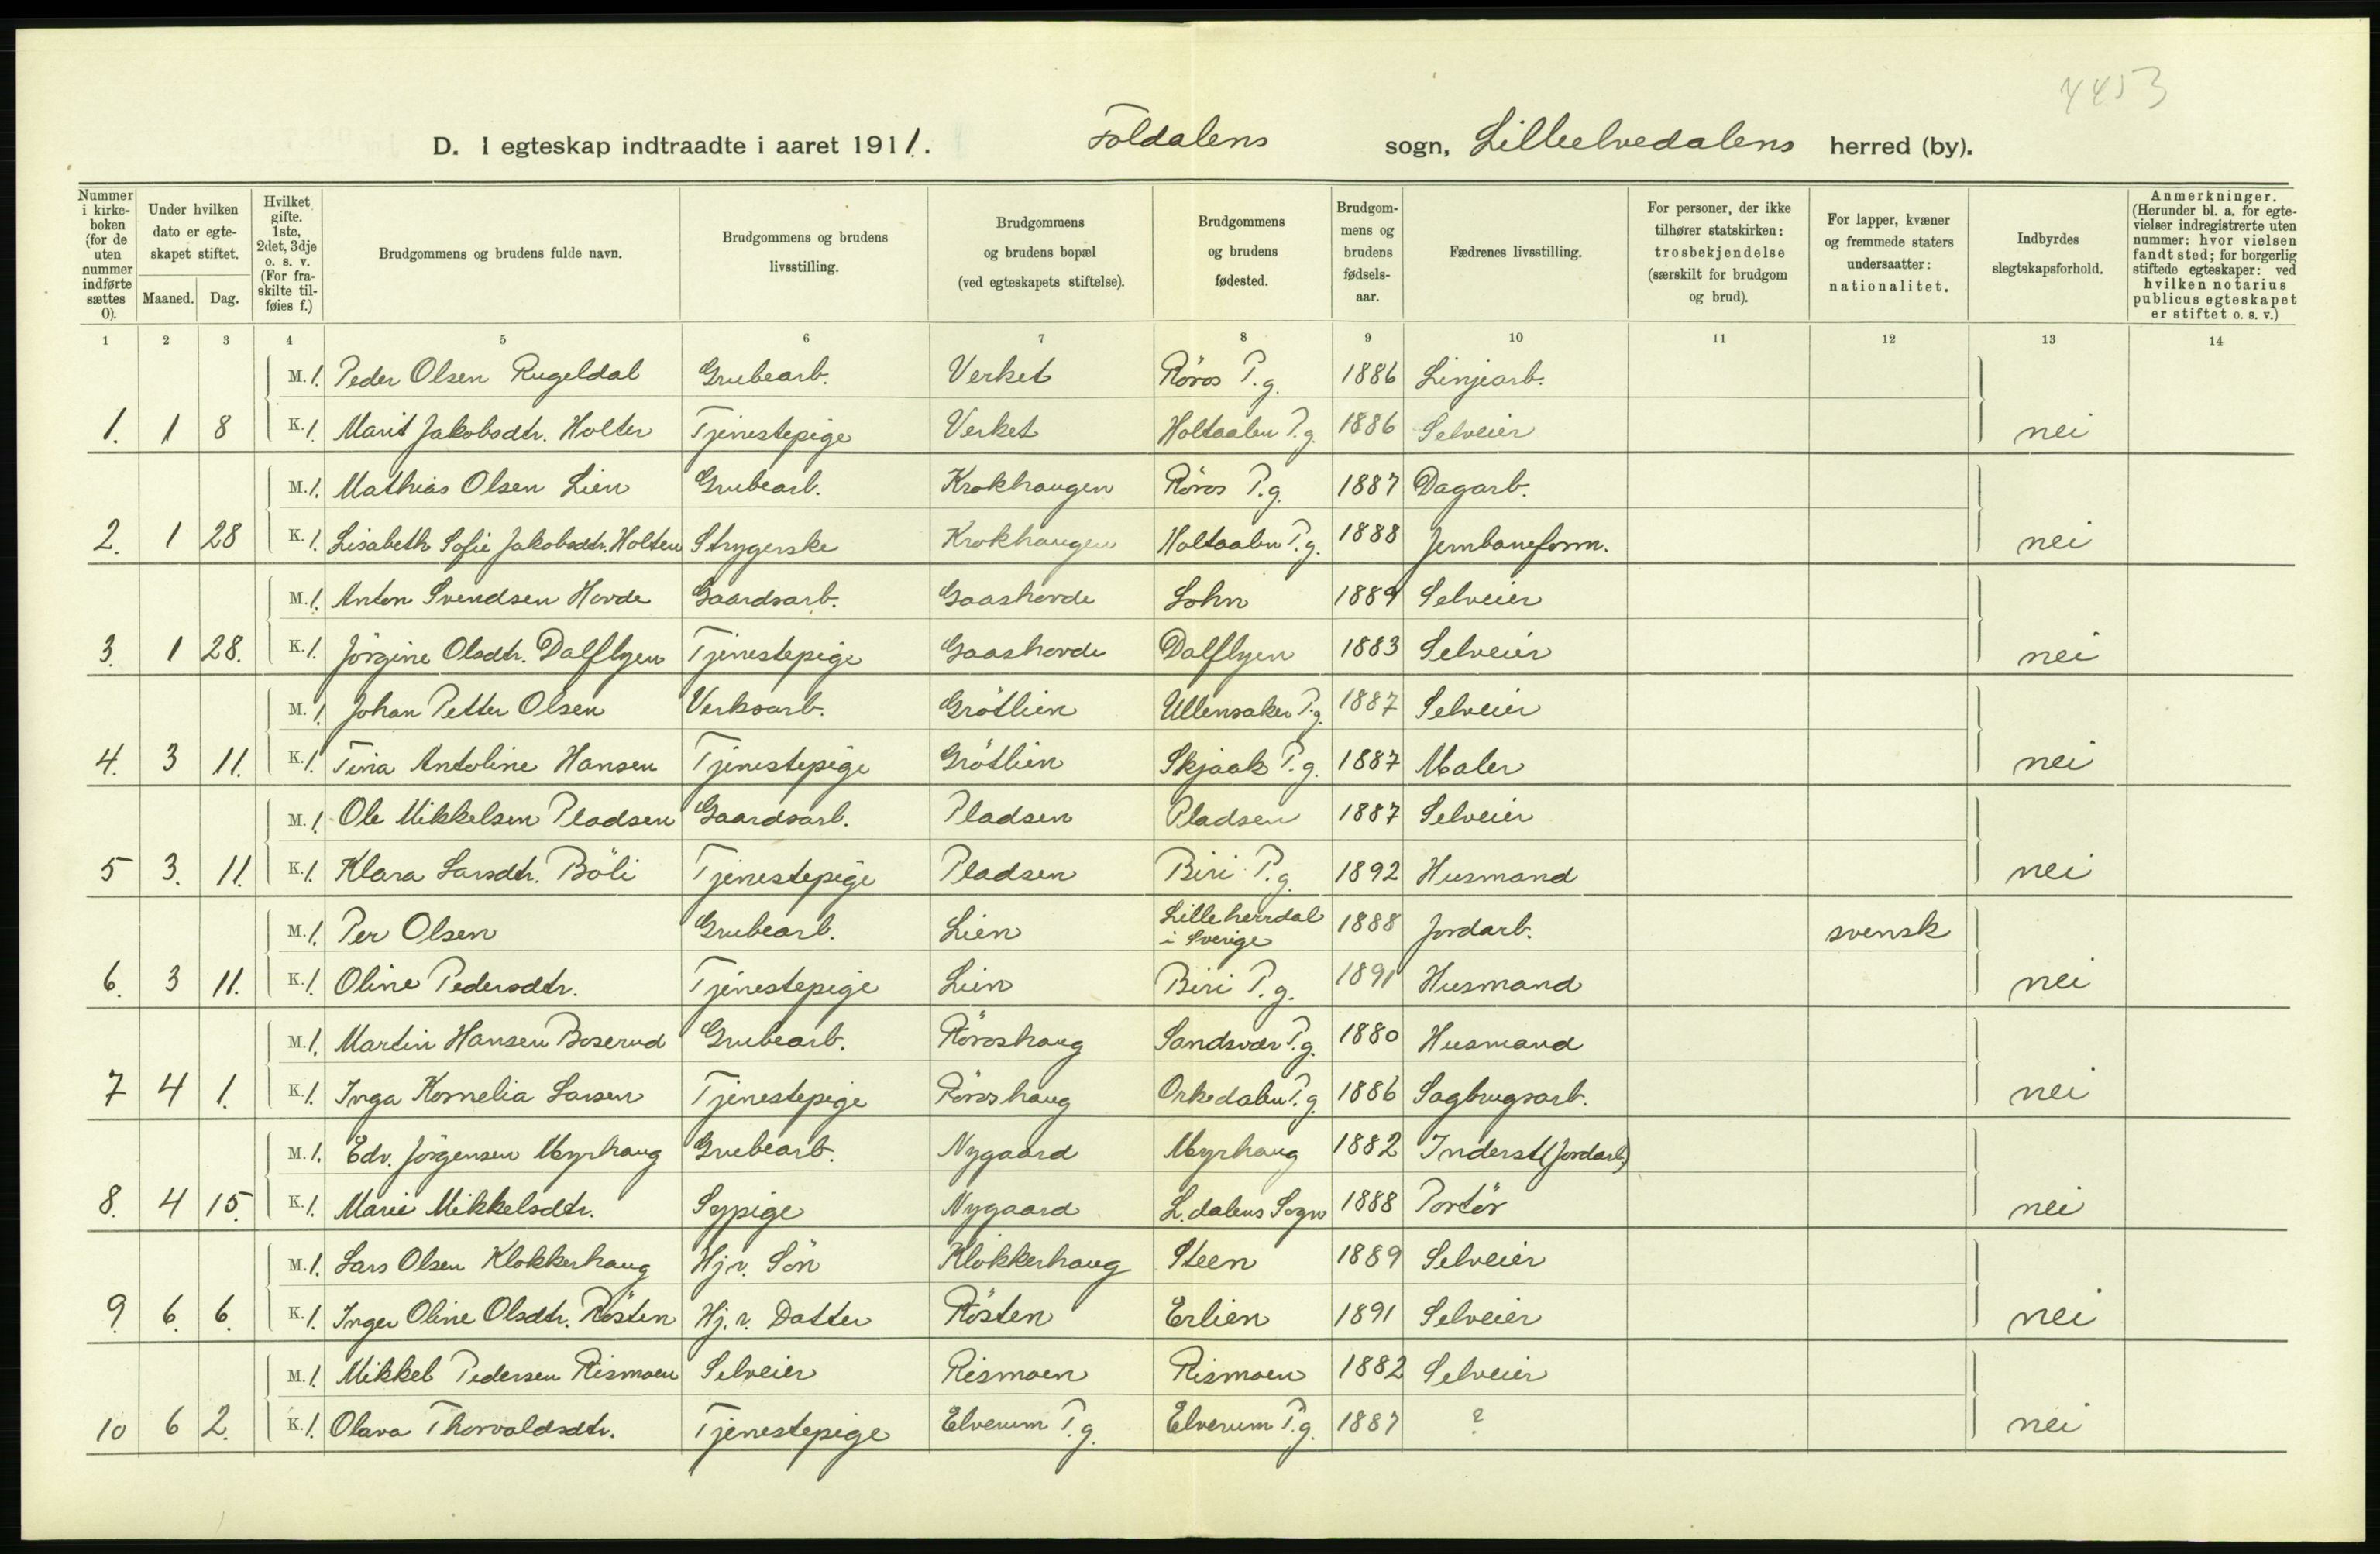 4453
D. I egteskap indtraadte i aaret 1911. Foldalens sogn, Lilleelvedalens herred (by).
Nummer i kirkeboken (for de uten nummer indførte sættes 0).
Under hvilken dato er egteskapet stiftet.
Maaned. Dag.
Hvilket gifte. 1ste, 2det, 3dje o. s. v. (For fraskilte tilføies f.)
Brudgommens og brudens fulde navn.
Brudgommens og brudens livsstilling.
Brudgommens og brudens bopæl (ved egteskapets stiftelse).
Brudgommens og brudens fødested.
Brudgommens og brudens fødselsaar.
Fædrenes livsstilling.
For personer, der ikke tilhører statskirken: trosbekjendelse (særskilt for brudgom og brud).
For lapper, kvæner og fremmede staters undersaatter: nationalitet.
Indbyrdes slegtskapsforhold.
Anmerkninger. (Herunder bl. a. for egtevielser indregistrerte uten nummer: hvor vielsen fandt sted; for borgerlig stiftede egteskaper: ved hvilken notarius publicus egteskapet er stiftet o. s. v.)
1 2 3 4 5 6 7 8 9 10 11 12 13 14
M. 1. Peder Olsen Rugeldal Grubearb. Verket Röros P.g. 1886 Linjearb.
1. 1 8 K. 1. Marit Jakobsdtr. Holter Tjenestepige Verket Holtaalen P.g. 1886 Selveier nei
M. 1. Mathias Olsen Lien Grubearb. Krokhaugen Röros P.g. 1887 Dagarb.
2. 1 28 K. 1. Lisabeth Sofie Jakobsdtr. Holten Strygerske Krokhaugen Holtaalen P.g. 1888 Jernbaneform. nei
M. 1. Anton Svendsen Hovde Gaardsarb. Gaashovde Sohn 1889 Selveier
3. 1 28. K. 1. Jörgine Olsdtr. Dalflyen Tjenestepige Gaashovde Dalflyen 1883 Selveier nei
M. 1. Johan Petter Olsen Verksarb. Grötlien Ullensaker P.g. 1887 Selveier
4. 3 11. K. 1. Tina Antoline Hansen Tjenestepige Grötlien Skjaak P.g. 1887 Maler nei
M. 1. Ole Mikkelsen Pladsen Gaardsarb. Pladsen Pladsen 1887 Selveier
5 3. 11. K. 1. Klara Larsdtr. Böli Tjenestepige Pladsen Biri P.g. 1892 Husmand nei
M. 1. Per Olsen Grubearb. Lien Lilleherrdal i Sverige 1888 Jordarb. svensk
6. 3 11. K. 1. Oline Pedersdtr. Tjenestepige Lien Biri P.g. 1891 Husmand nei
M. 1. Martin Hansen Boserud Grubearb. Röroshaug Sandsvær P.g. 1880 Husmand
7 4 1. K. 1. Inga Kornelia Larsen Tjenestepige Röroshaug Orkedalen P.g. 1886 Sagbrugsarb. nei
M. 1. Edv. Jörgensen Myrhaug Grubearb. Nygaard Myrhaug 1882 Inderst (Jordarb.)
8. 4 15. K. 1. Marie Mikkelsdtr. Sypige Nygaard L.dalens Sogn 1888 Portör nei
M. 1. Lars Olsen Klokkerhaug Hj.v. Sön Klokkerhaug Steen 1889 Selveier
9. 6. 6. K. 1. Inger Oline Olsdtr. Rösten Hj.v. Datter Rösten Erlien 1891 Selveier nei
M. 1. Mikkel Pedersen Rismoen Selveier Rismoen Rismoen 1882 Selveier
10 6 2. K. 1. Olava Thorvaldsdtr. Tjenestepige Elverum P.g. Elverum P.g. 1887 ? nei